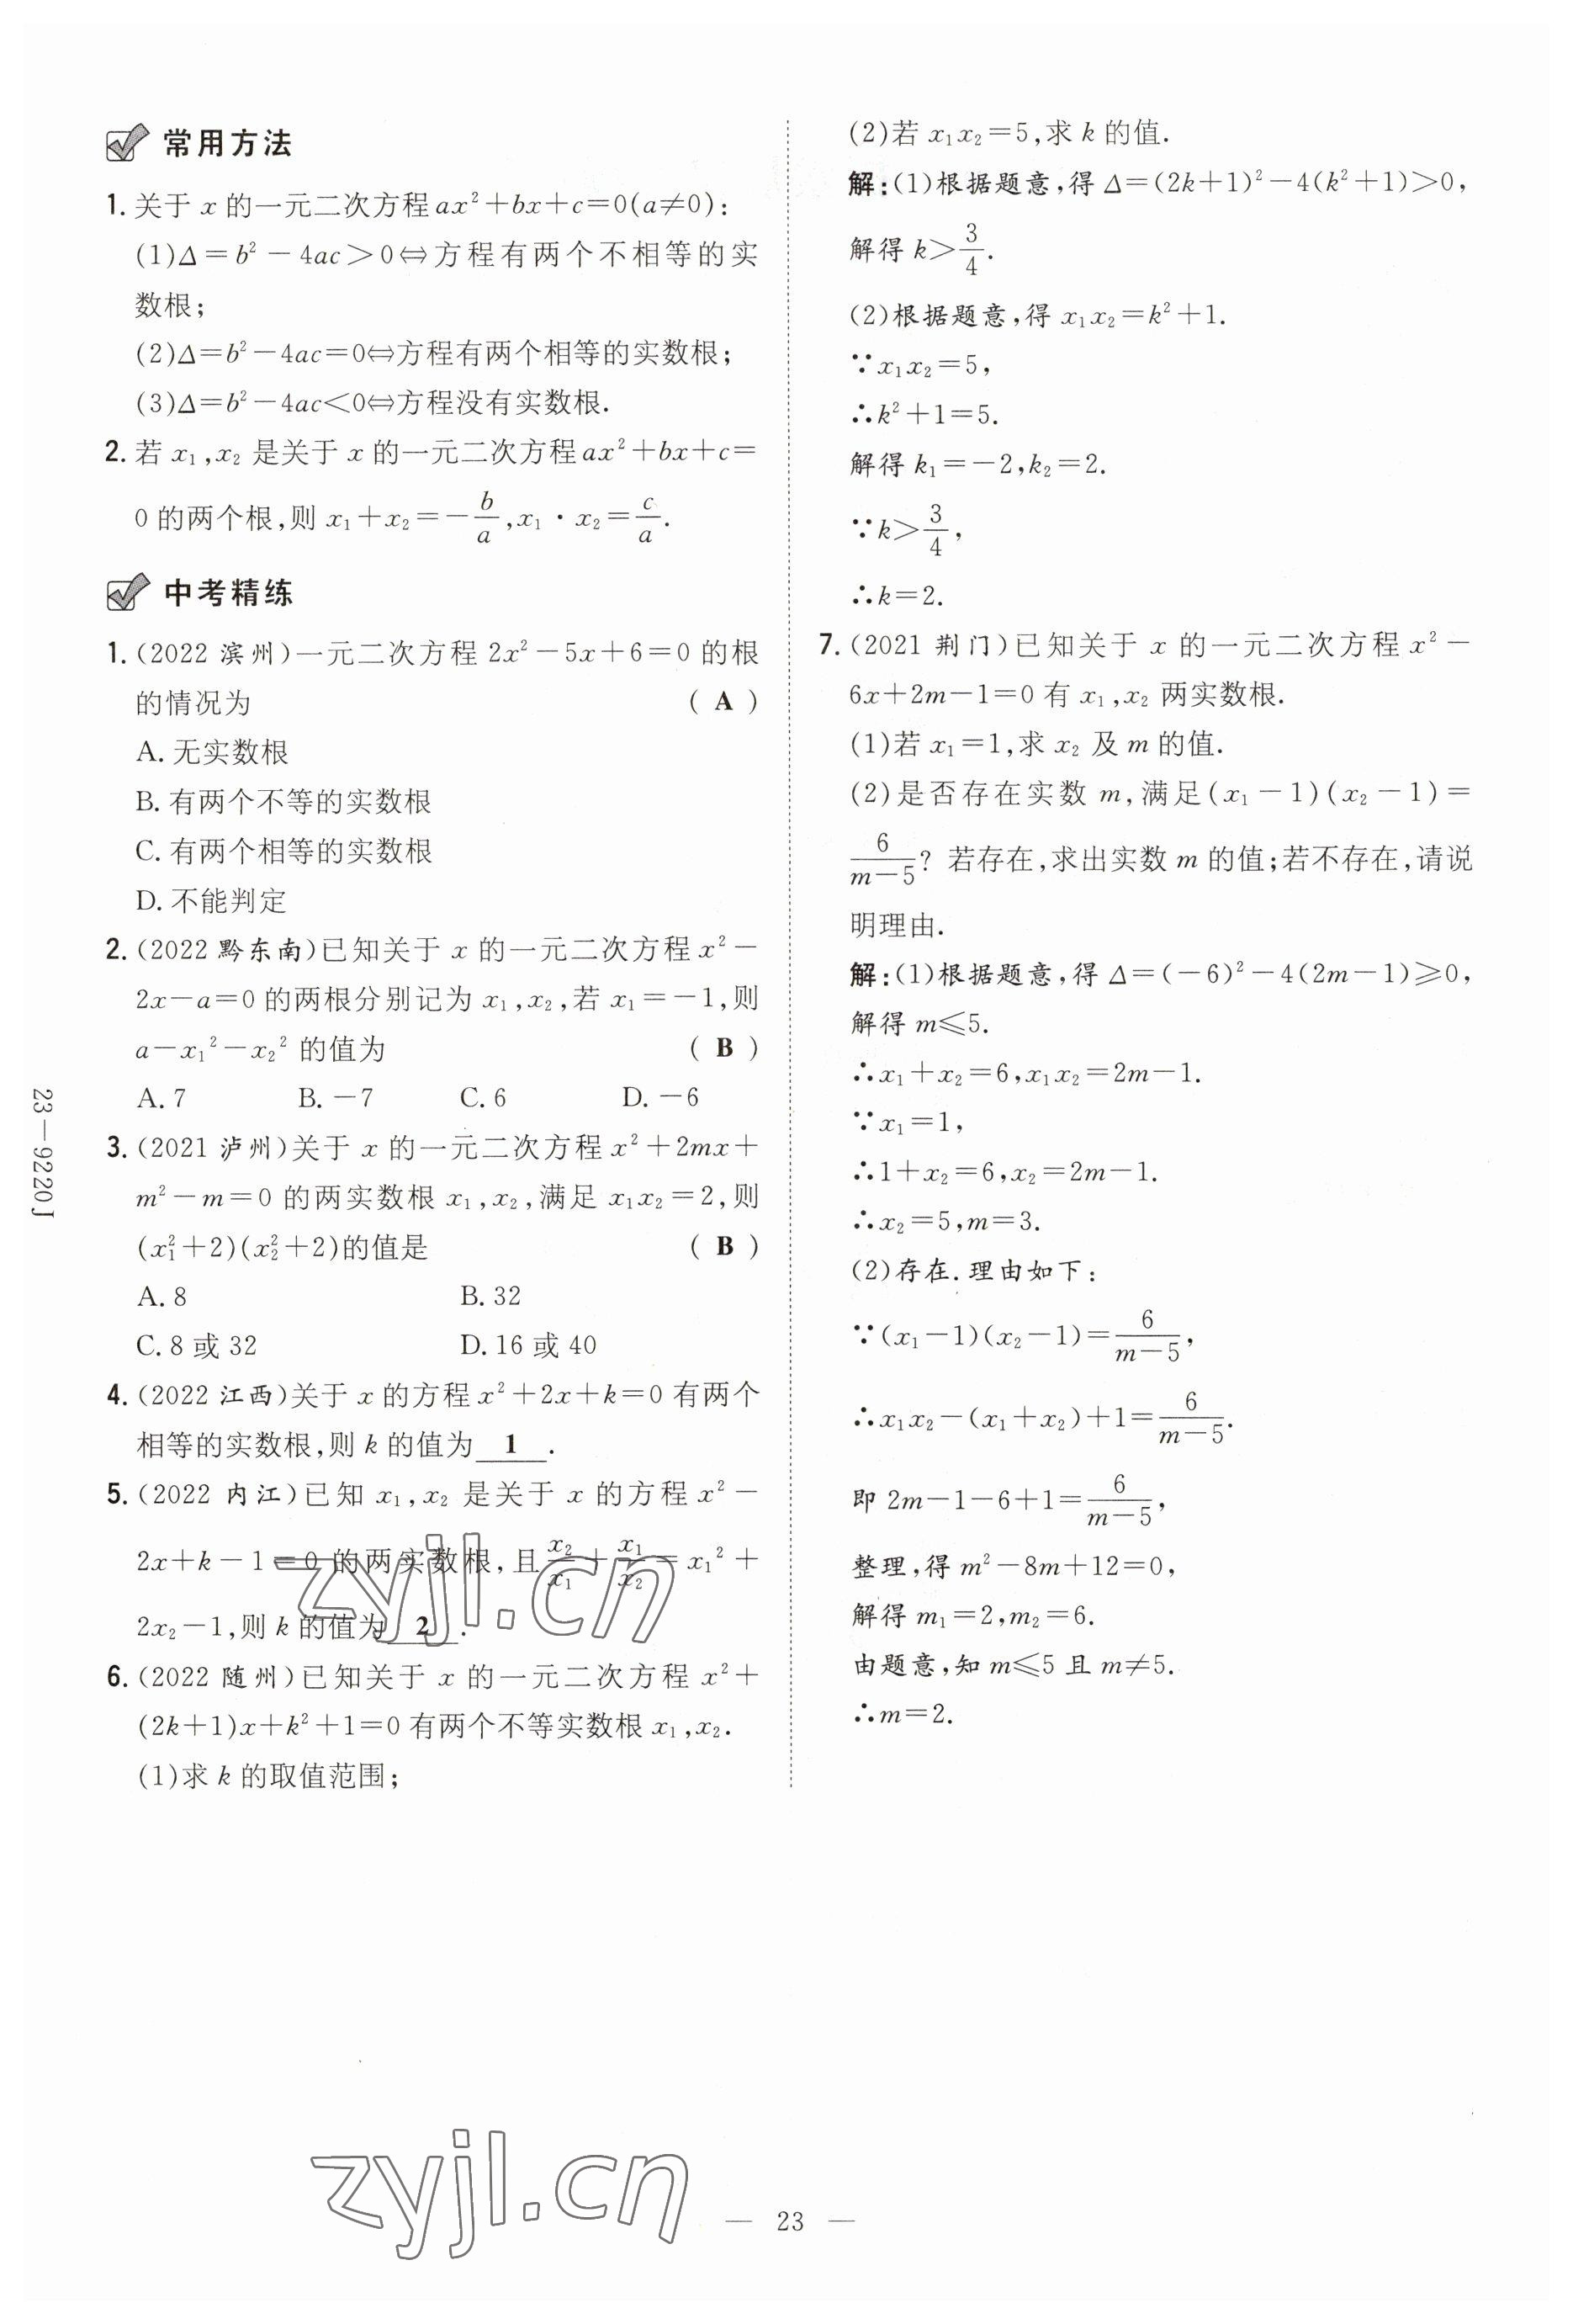 常用方法
1. 关于 x 的一元二次方程 ax²+bx+c=0(a≠0)：
(1)Δ=b²-4ac>0⇔方程有两个不相等的实
数根；
(2)Δ=b²-4ac=0⇔方程有两个相等的实数根；
(3)Δ=b²-4ac<0⇔方程没有实数根.
2. 若 x₁,x₂ 是关于 x 的一元二次方程 ax²+bx+c=
0 的两个根,则 x₁+x₂=-b/a,x₁·x₂=c/a.
中考精练
1. (2022 滨州)一元二次方程 2x²-5x+6=0 的根
的情况为 ( A )
A. 无实数根
B. 有两个不等的实数根
C. 有两个相等的实数根
D. 不能判定
2. (2022 黔东南)已知关于 x 的一元二次方程 x²-
2x-a=0 的两根分别记为 x₁,x₂,若 x₁=-1,则
a-x₁²-x₂² 的值为 ( B )
A. 7 B. -7 C. 6 D. -6
3. (2021 泸州)关于 x 的一元二次方程 x²+2mx+
m²-m=0 的两实数根 x₁,x₂,满足 x₁x₂=2,则
(x₁²+2)(x₂²+2)的值是 ( B )
A. 8 B. 32
C. 8 或 32 D. 16 或 40
4. (2022 江西)关于 x 的方程 x²+2x+k=0 有两个
相等的实数根,则 k 的值为 1 .
5. (2022 内江)已知 x₁,x₂ 是关于 x 的方程 x²-
2x+k-1=0 的两实数根,且 x₂/x₁+x₁/x₂=x₁²+
2x₂-1,则 k 的值为 2 .
6. (2022 随州)已知关于 x 的一元二次方程 x²+
(2k+1)x+k²+1=0 有两个不等实数根 x₁,x₂.
(1)求 k 的取值范围；
(2)若 x₁x₂=5,求 k 的值.
解：(1)根据题意,得 Δ=(2k+1)²-4(k²+1)>0,
解得 k>3/4.
(2)根据题意,得 x₁x₂=k²+1.
∵x₁x₂=5,
∴k²+1=5.
解得 k₁=-2,k₂=2.
∵k>3/4,
∴k=2.
7. (2021 荆门)已知关于 x 的一元二次方程 x²-
6x+2m-1=0 有 x₁,x₂ 两实数根.
(1)若 x₁=1,求 x₂ 及 m 的值.
(2)是否存在实数 m,满足(x₁-1)(x₂-1)=
6/(m-5)? 若存在,求出实数 m 的值；若不存在,请说
明理由.
解：(1)根据题意,得 Δ=(-6)²-4(2m-1)⩾0,
解得 m⩽5.
∴x₁+x₂=6,x₁x₂=2m-1.
∵x₁=1,
∴1+x₂=6,x₂=2m-1.
∴x₂=5,m=3.
(2)存在. 理由如下：
∵(x₁-1)(x₂-1)=6/(m-5),
∴x₁x₂-(x₁+x₂)+1=6/(m-5).
即 2m-1-6+1=6/(m-5),
整理,得 m²-8m+12=0,
解得 m₁=2,m₂=6.
由题意,知 m⩽5 且 m≠5.
∴m=2.
23—9220J
zyjl.cn
zyjl.cn
— 23 —